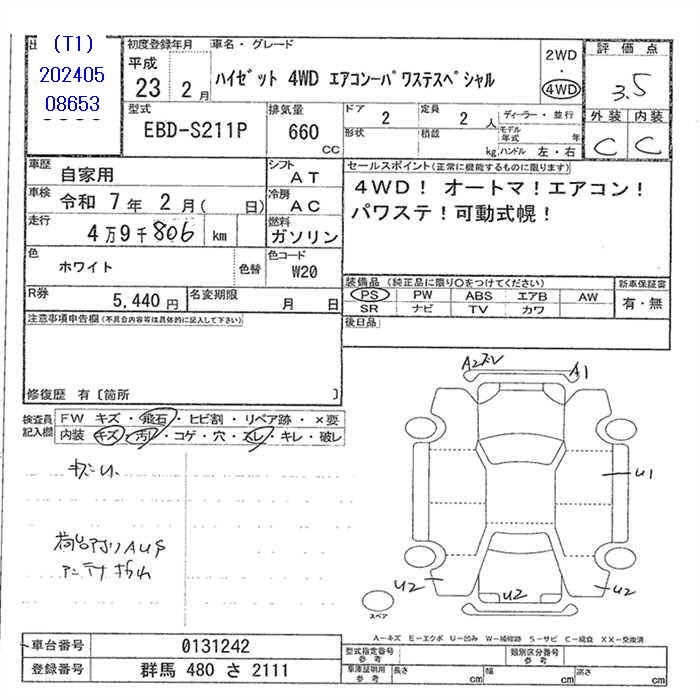 (T1)
202405
08653
初度登録年月
平成
23 2月
車名・グレード
ハイゼット 4WD エアコンーパワステスペシャル
2WD
・
4WD
評価点
3.5
外装 内装
C C
型式
EBD-S211P
排気量
660
CC
ドア
2
定員
2 人
ディーラー・並行
形状
積載
kg
モデル年式
年
ハンドル 左・右
車歴
自家用
シフト
AT
車検
令和 7年 2月( 日)
冷房
AC
走行
4万9千806 km
燃料
ガソリン
色
ホワイト
色替
色コード
W20
R券
5,440 円
名変期限
月 日
セールスポイント(正常に機能するものに限ります)
4WD! オートマ!エアコン!
パワステ!可動式幌!
装備品 (純正品に限り○をつけてください)
PS PW ABS エアB AW
SR ナビ TV カワ
新車保証書
有・無
後日品
注意事項申告欄(不具合内容等は具体的に記入して下さい)
修復歴 有〔箇所 〕
検査員
記入欄
FW キズ・飛石・ヒビ割・リペア跡・×要
内装 キズ・汚れ・コゲ・穴・スレ・キレ・破レ
アンテナ
A1
U1
U2
U2
U2
スペア
A-キズ E-エクボ U-凹み W-補修跡 S-サビ C-腐食 XX-交換済
車台番号
0131242
登録番号
群馬 480 さ 2111
型式指定番号
参考
類別区分番号
参考
車庫証明用
参考
長さ cm
幅 cm
高さ cm